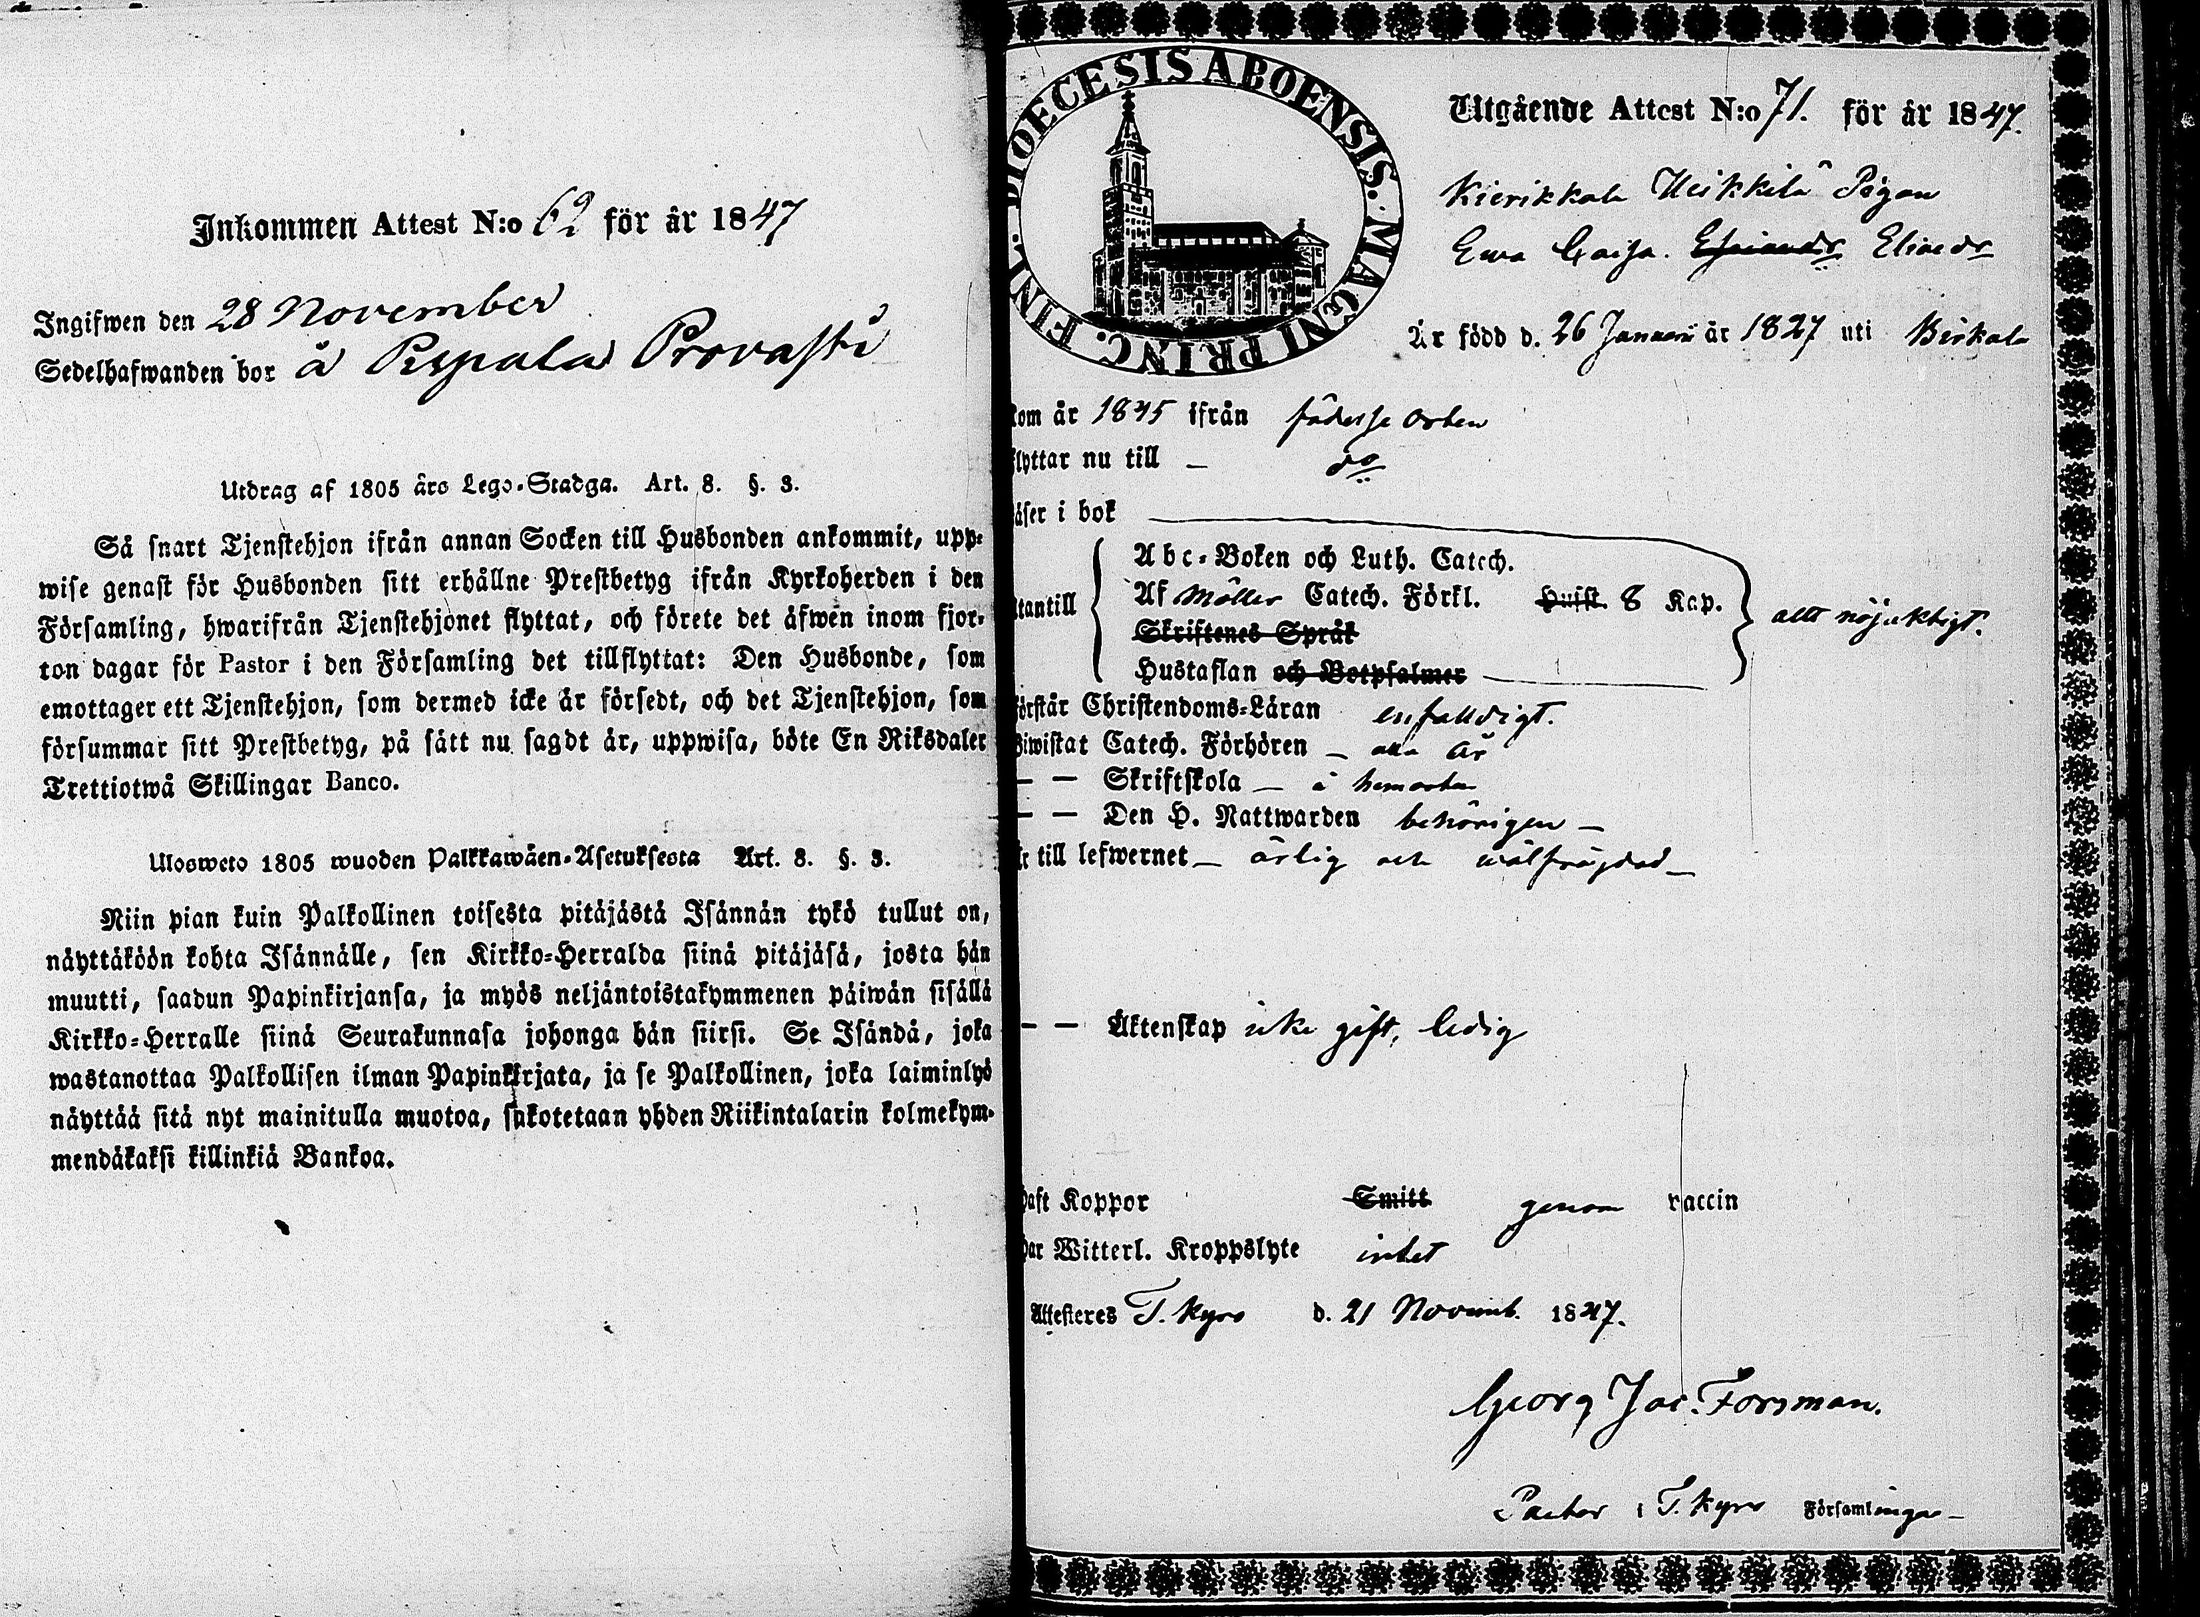 Inkommen Attest N:o 62 för år 1847
Ingifwen den 28 November
Sedelhafwanden bor å Pispala Provasti
Utdrag af 1805 års Lego-Stadga. Art. 8. §. 3.
Så snart Tjenstehjon ifrån annan Socken till Husbonden ankommit, upp-
wise genast för Husbonden sitt erhållne Prestbetyg ifrån Kyrkoherden i den
Församling, hwarifrån Tjenstehjonet flyttat, och förete det äfwen inom fjor-
ton dagar för Pastor i den Församling det tillflyttat: Den Husbonde, som
emottager ett Tjenstehjon, som dermed icke är försedt, och det Tjenstehjon, som
försummar sitt Prestbetyg, på sätt nu sagdt är, uppwisa, böte En Riksdaler
Trettiotwå Skillingar Banco.
Ulosweto 1805 wuoden Palkkawäen-Asetuksesta Art. 8. §. 3.
Niin pian kuin Palkollinen toisesta pitäjästä Isännän tykö tullut on,
näyttäköön kohta Isännälle, sen Kirkko-Herralda siinä pitäjäsä, josta hän
muutti, saadun Papinkirjansa, ja myös neljäntoistakymmenen päiwän sisällä
Kirkko-Herralle siinä Seurakunnasa johonga hän siirsi. Se Isändä, joka
wastanottaa Palkollisen ilman Papinkirjata, ja se Palkollinen, joka laiminlyö
näyttää sitä nyt mainitulla muotoa, sakotetaan yhden Riikintalarin kolmekym-
mendäkaksi killinkiä Bankoa.
DIOECESIS ABOENSIS. MAGNI PRINC. FINL.
Utgående Attest N:o 71. för år 1847.
Kierikkala Heikkilä Pigan
Ewa Caisa. Eliaedr
Är född d. 26 Januarii år 1827 uti Birkala
kom år 1845 ifrån födelse orten
flyttar nu till — do
läser i bok
Abc-Boken och Luth. Catech.
utantill Af Möller Catech. Förkl. Husst. 8 Kap. allt nöjaktigt.
Skriftenes Språk
Hustaflan och Botpsalmer
förstår Christendoms-Läran enfalldigt.
Biwistat Catech. Förhören — alla år
— — Skriftskola — i hemorten
— — Den H. Nattwarden behörigen —
är till lefwernet — ärlig och wälfrägdad —
— — Äktenskap icke gift, ledig
haft Koppor Smitt genom vaccin
har Witterl. Kroppslyte intet
Attesteres T. Kyro d. 21 Novemb. 1847.
Georg Jac. Forsman.
Pastor i T. Kyro Församlingar —